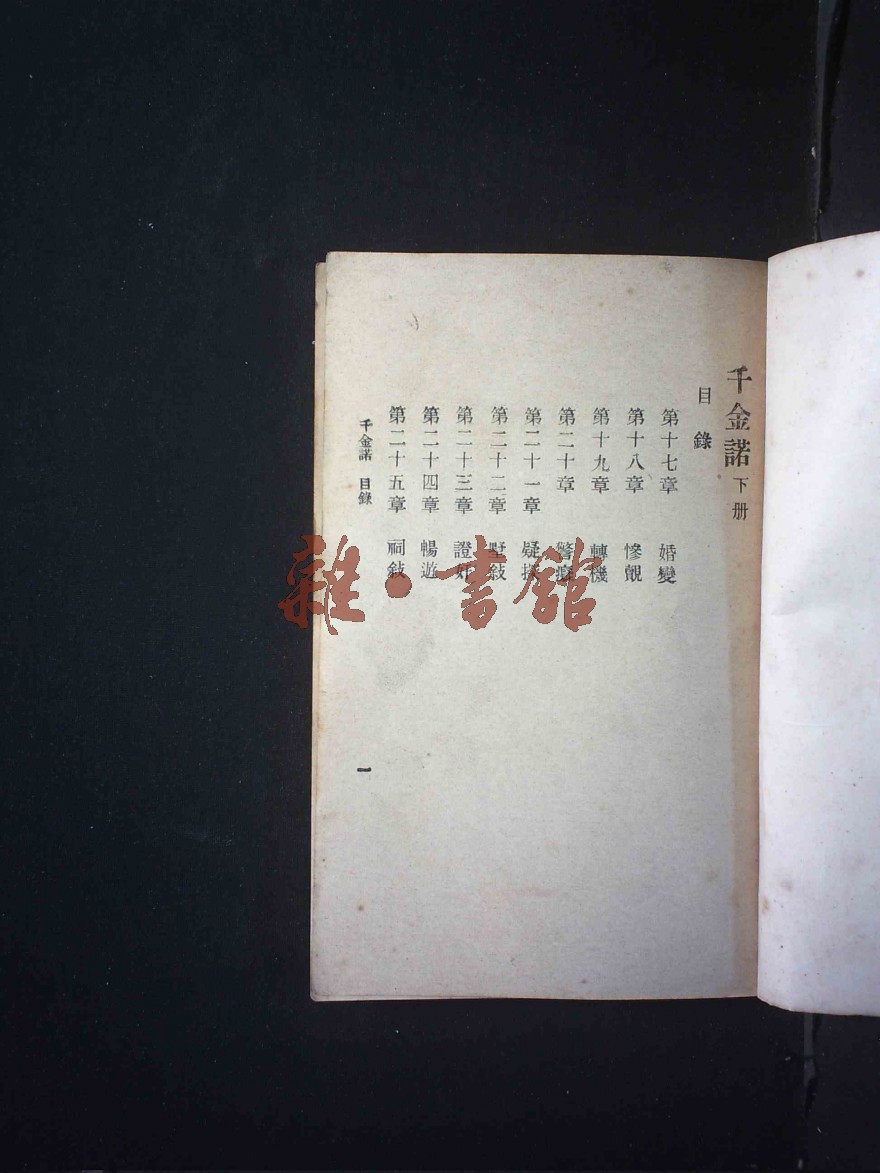 千金諾 下册
目錄
第十七章 婚變
第十八章 慘覿
第十九章 轉機
第二十章 警癡
第二十一章 疑探
第二十二章 墅敍
第二十三章 證奸
第二十四章 暢遊
第二十五章 祠敍
千金諾 目錄
一
雜·書館